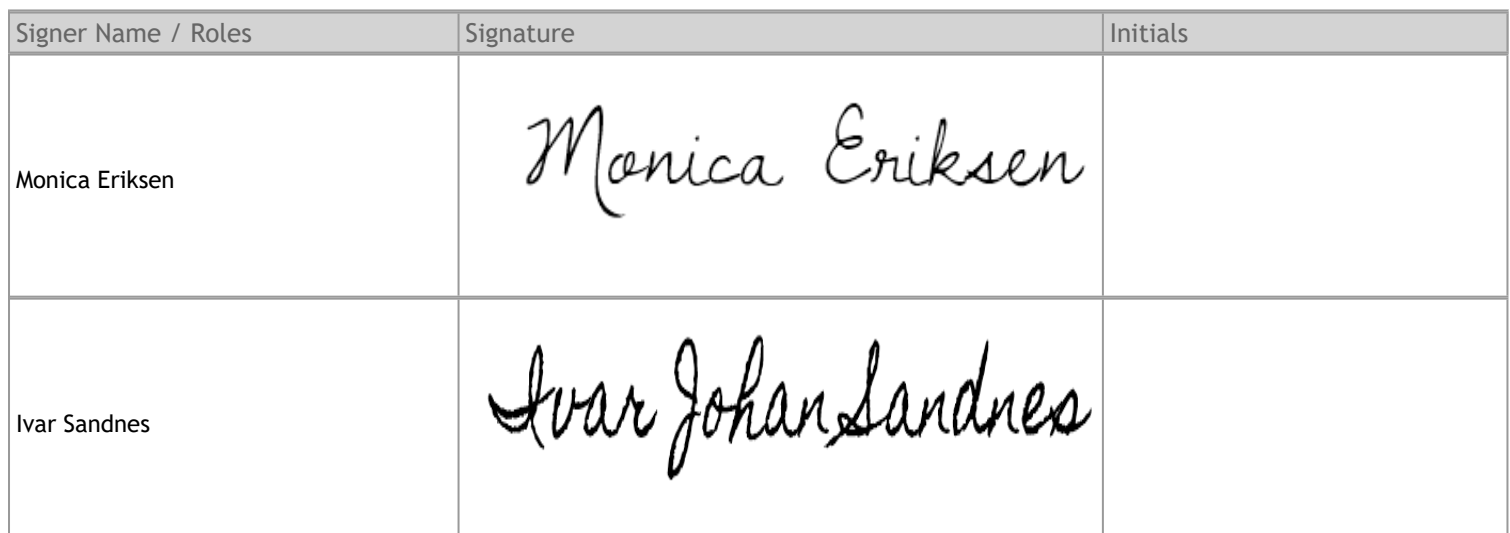 Signer Name / Roles Signature Initials
Monica Eriksen Monica Eriksen
Ivar Sandnes Ivar Johan Sandnes